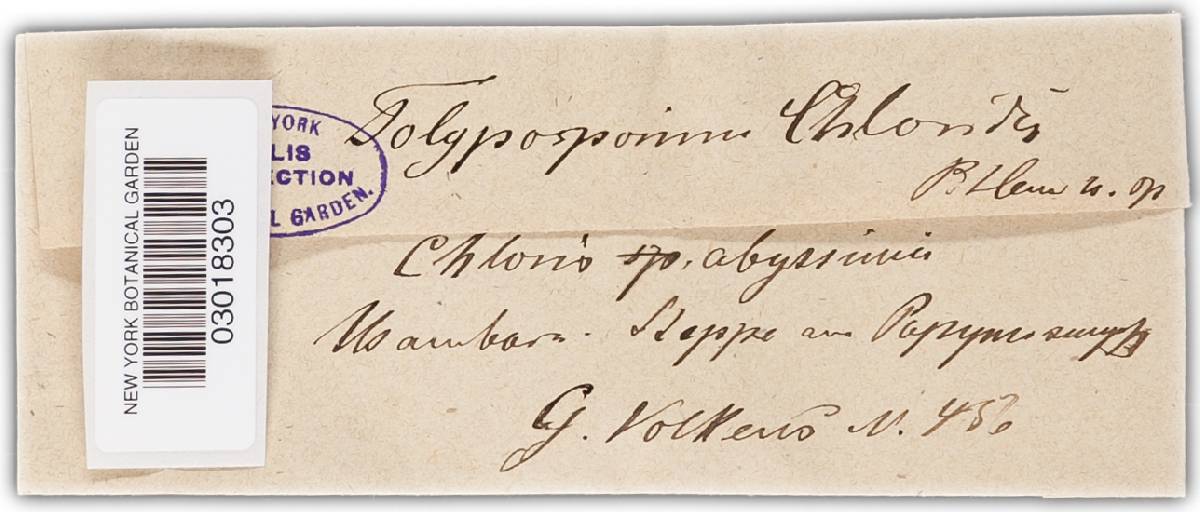 NEW YORK BOTANICAL GARDEN
03018303
YORK
LIS
ECTION
L GARDEN.
Tolyposporium Chloridis
P. Henn n. sp
Chloris sp. abyssinica
Usambara. Steppe am Papyrussumpf
G. Volkens N. 456